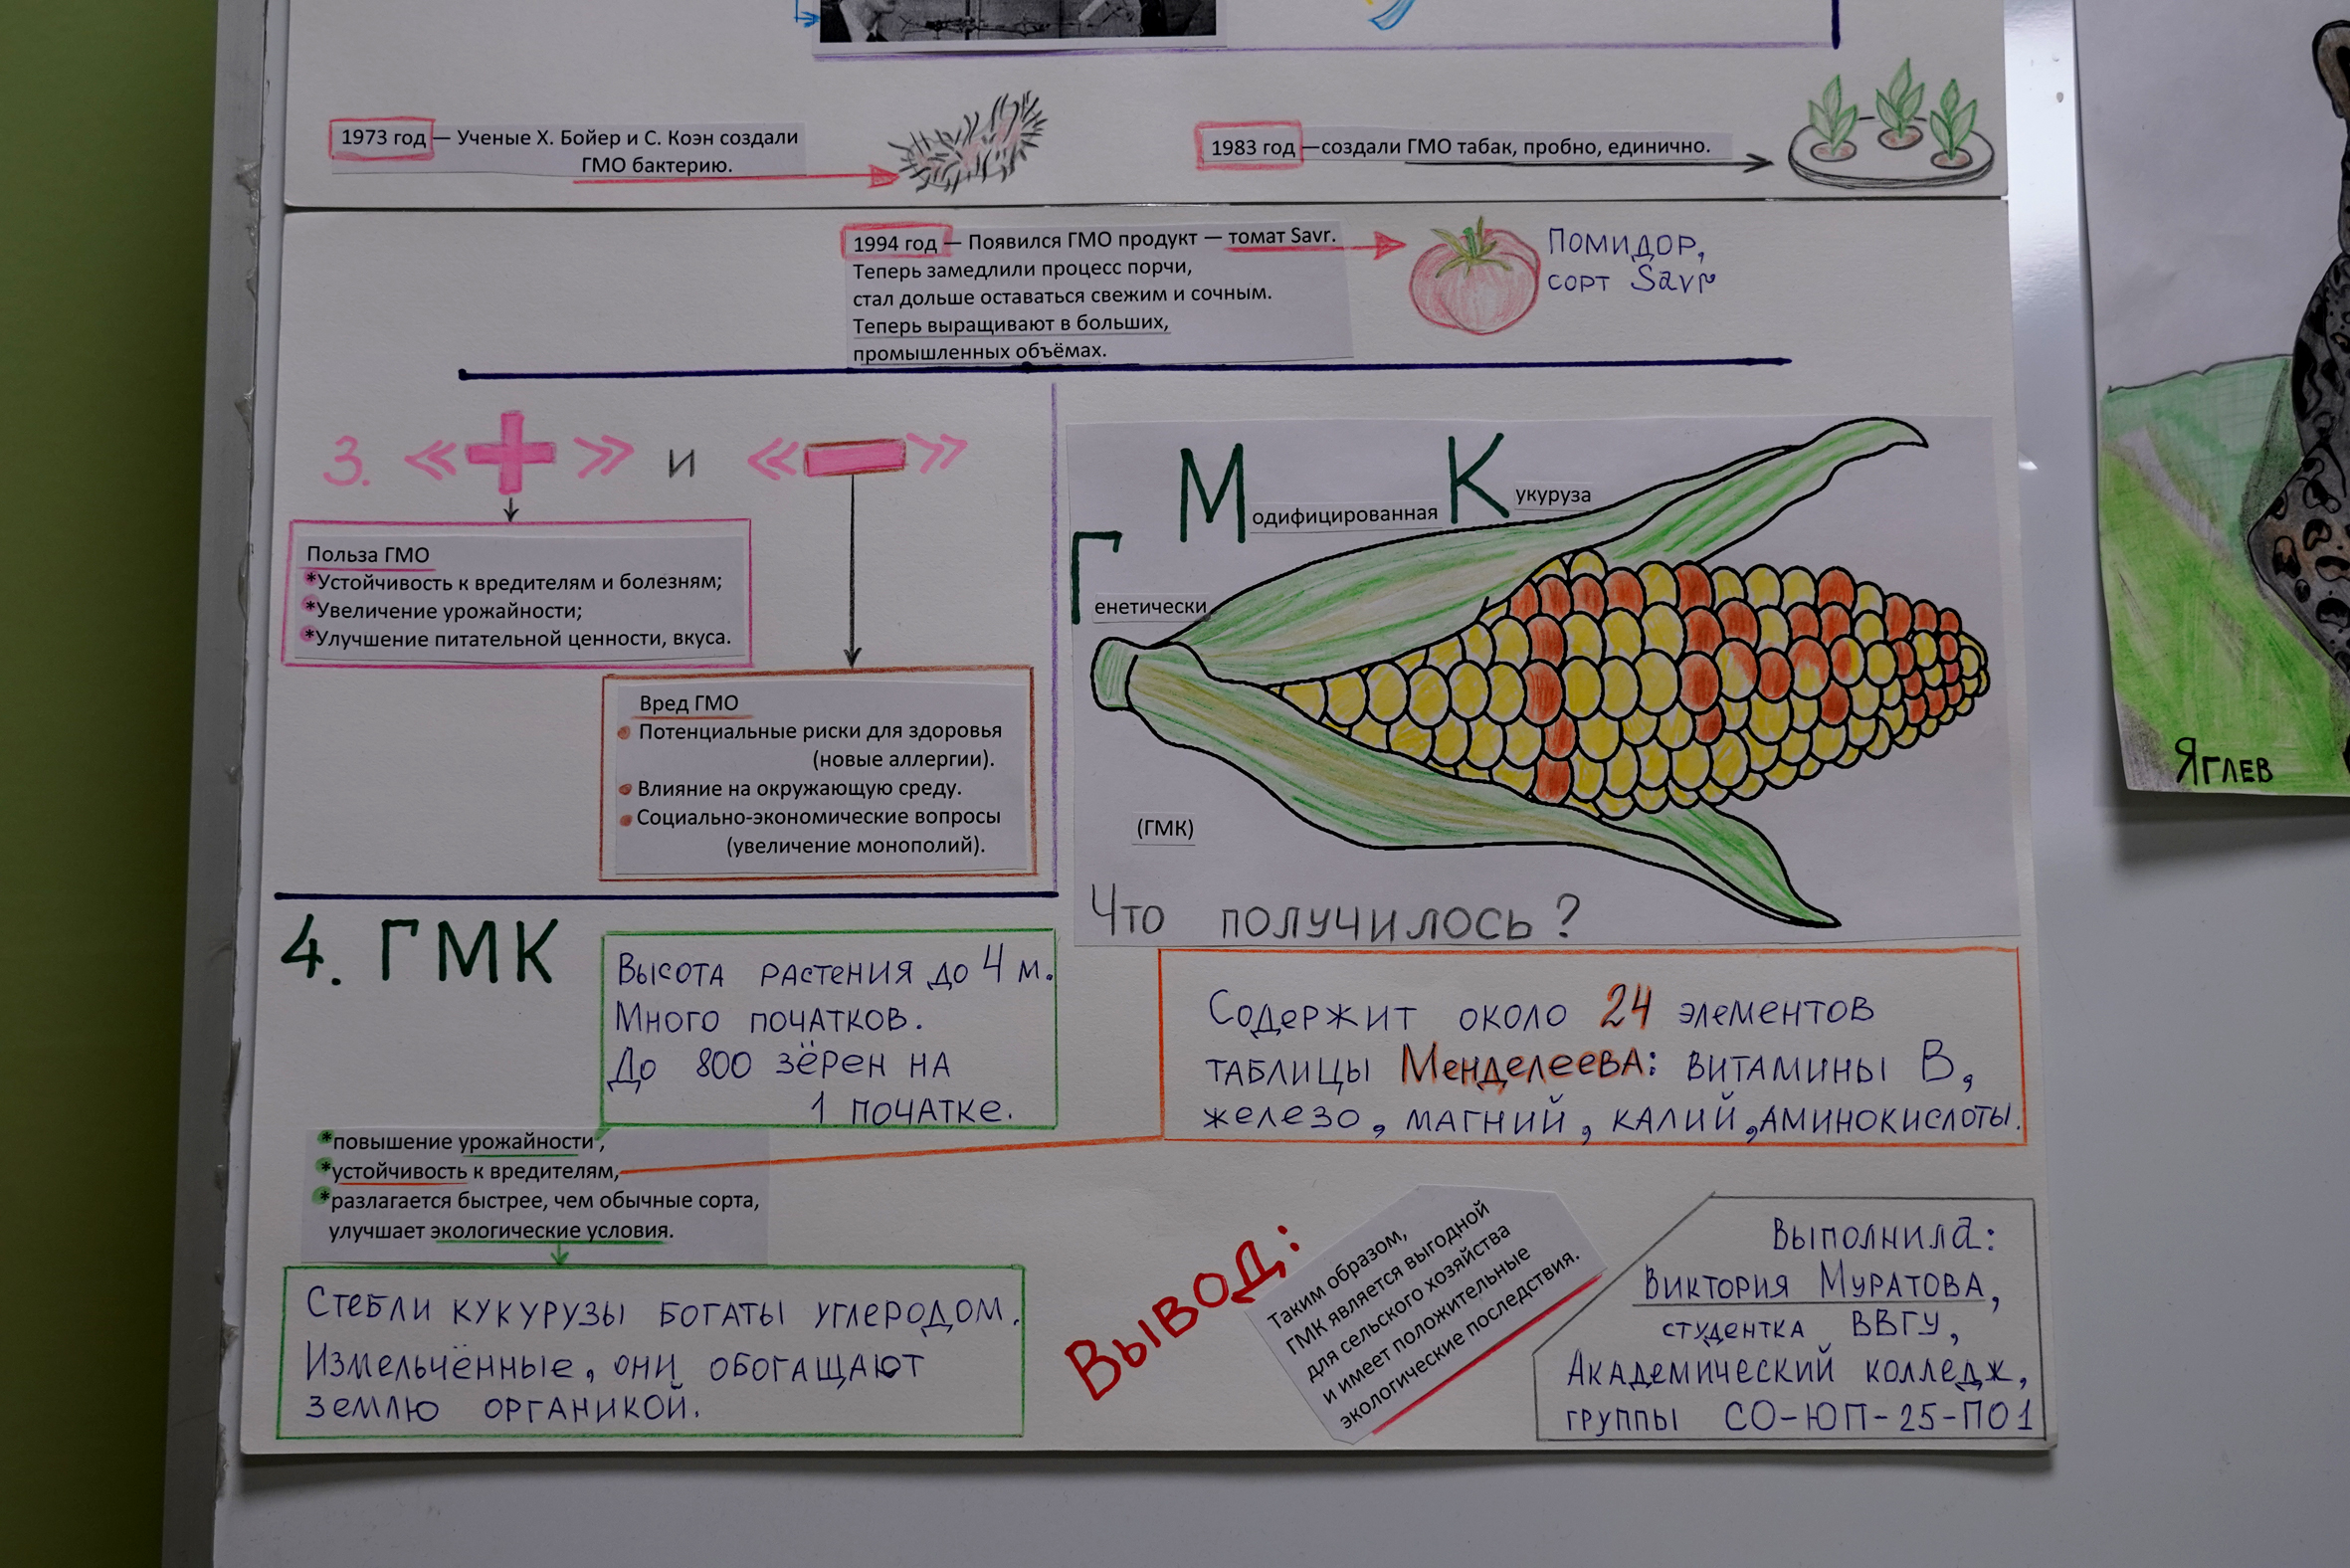 1973 год — Ученые Х. Бойер и С. Коэн создали
ГМО бактерию.
1983 год —создали ГМО табак, пробно, единично.
1994 год — Появился ГМО продукт — томат Savr.
Теперь замедлили процесс порчи,
стал дольше оставаться свежим и сочным.
Теперь выращивают в больших,
промышленных объёмах.
Помидор,
сорт Savr
3. «+» и «-»
Польза ГМО
*Устойчивость к вредителям и болезням;
*Увеличение урожайности;
*Улучшение питательной ценности, вкуса.
Вред ГМО
Потенциальные риски для здоровья
(новые аллергии).
Влияние на окружающую среду.
Социально-экономические вопросы
(увеличение монополий).
Генетически
Модифицированная Кукуруза
(ГМК)
Что получилось?
4. ГМК
Высота растения до 4 м.
Много початков.
До 800 зёрен на
1 початке.
Содержит около 24 элементов
таблицы Менделеева: витамины В,
железо, магний, калий, аминокислоты.
*повышение урожайности,
*устойчивость к вредителям,
*разлагается быстрее, чем обычные сорта,
улучшает экологические условия.
Стебли кукурузы богаты углеродом.
Измельчённые, они обогащают
землю органикой.
Вывод:
Таким образом,
ГМК является выгодной
для сельского хозяйства
и имеет положительные
экологические последствия.
Выполнила:
Виктория Муратова,
студентка ВВГУ,
Академический колледж,
группы СО-ЮП-25-ПО1
Яглев